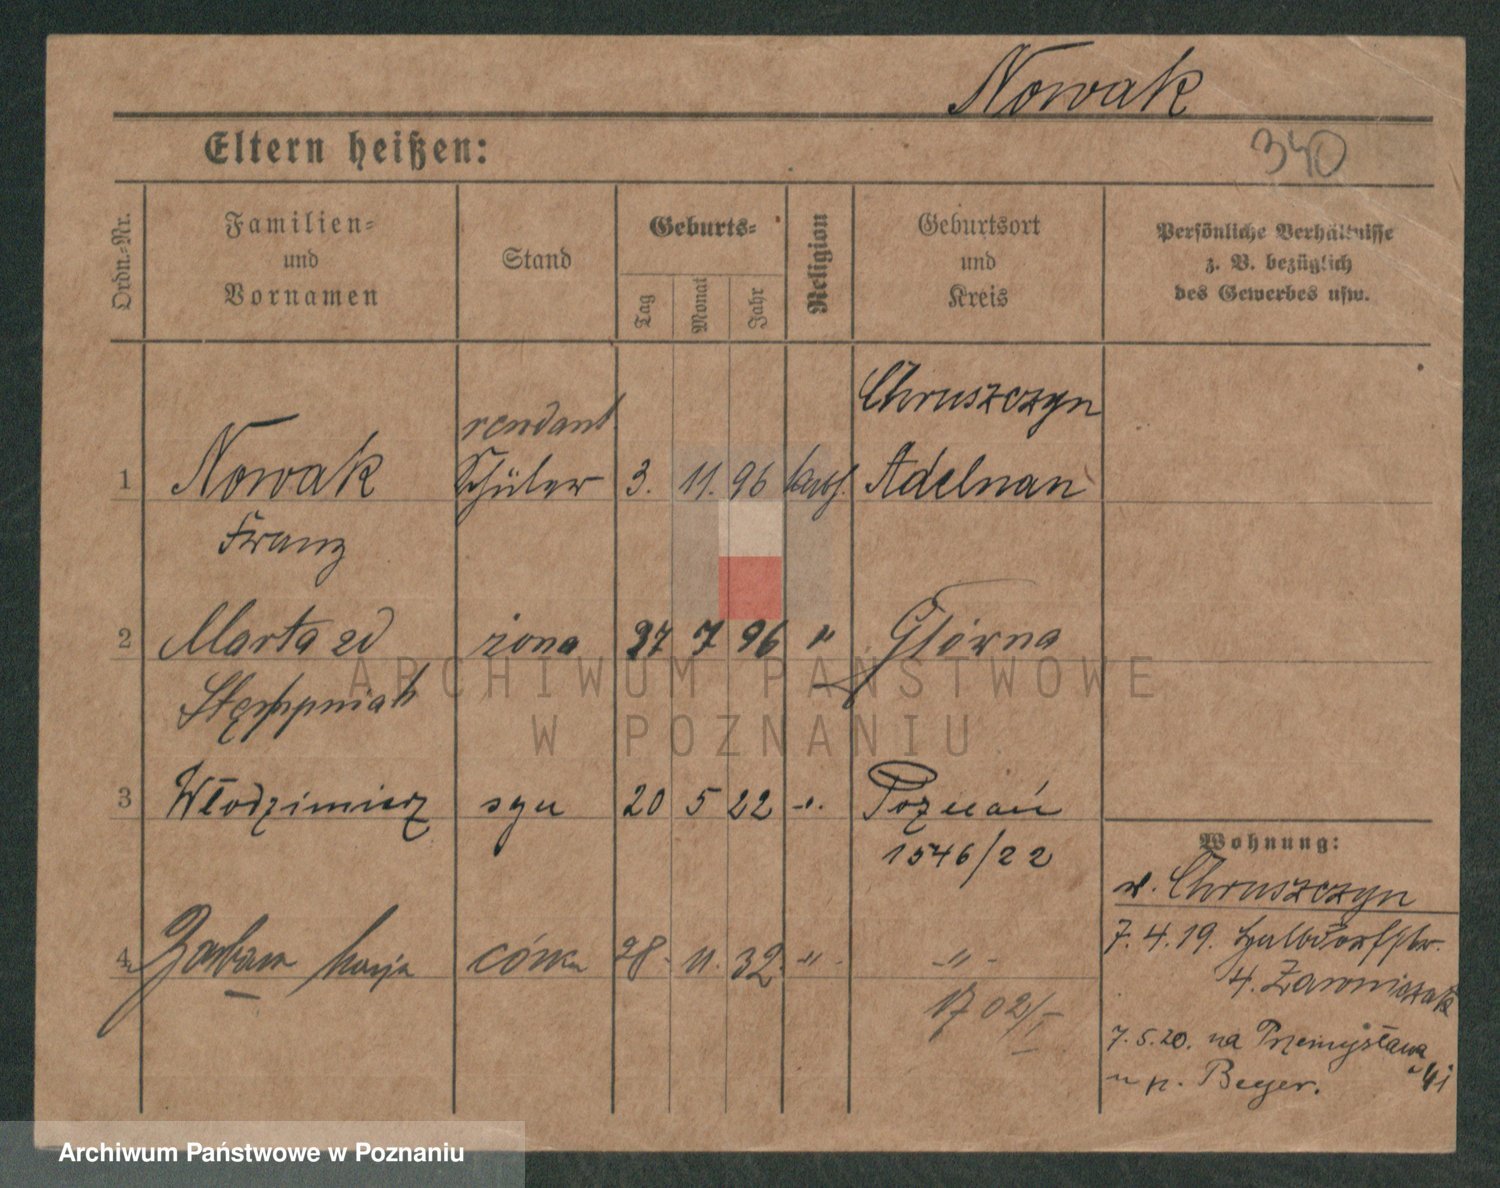 Nowak
Eltern heißen:
340
Ordn.-Nr.
Familien-
und
Vornamen
Stand
Geburts-
Tag
Monat
Jahr
Religion
Geburtsort
und
Kreis
Persönliche Verhältnisse
z. B. bezüglich
des Gewerbes usw.
rendant
Chruszczyn
1 Nowak Schüler 3. 11. 96 kath. Adelnau
Franz
2 Marta zd żona 27 7 96 " Główna
Stęmpniak
3 Włodzimierz syn 20 5 22 -"- Poznań
1546/22
Wohnung:
v. Chruszczyn
4 Barbara córka 28. 11. 32 -"- -"-
1702/
7. 4. 19.
4.
7. 5. 20. na Przemysława
u p. Beyer.
ARCHIWUM PAŃSTWOWE
W POZNANIU
Archiwum Państwowe w Poznaniu